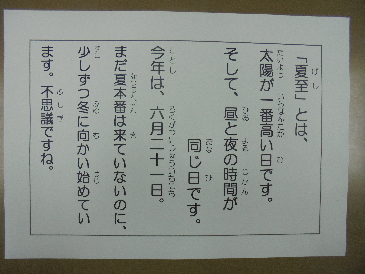 「夏至」とは、
太陽が一番高い日です。
そして、昼と夜の時間が
同じ日です。
今年は、六月二十一日。
まだ夏本番は来ていないのに、
少しずつ冬に向かい始めてい
ます。不思議ですね。